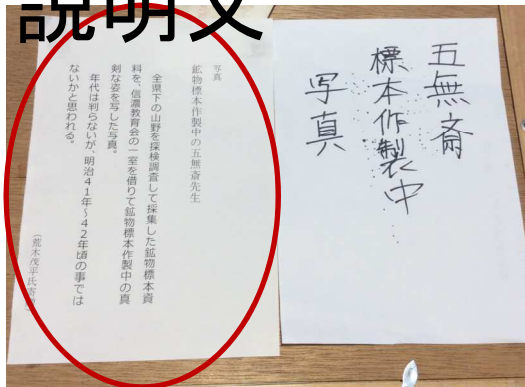 説明文
写真
鉱物標本作製中の五無斎先生
全県下の山野を探検調査して採集した鉱物標本資
料を、信濃教育会の一室を借りて鉱物標本作製中の真
剣な姿を写した写真。
年代は判らないが、明治41年～42年頃の事では
ないかと思われる。
(荒木茂平氏寄贈)
五無斎
標本作製中
写真